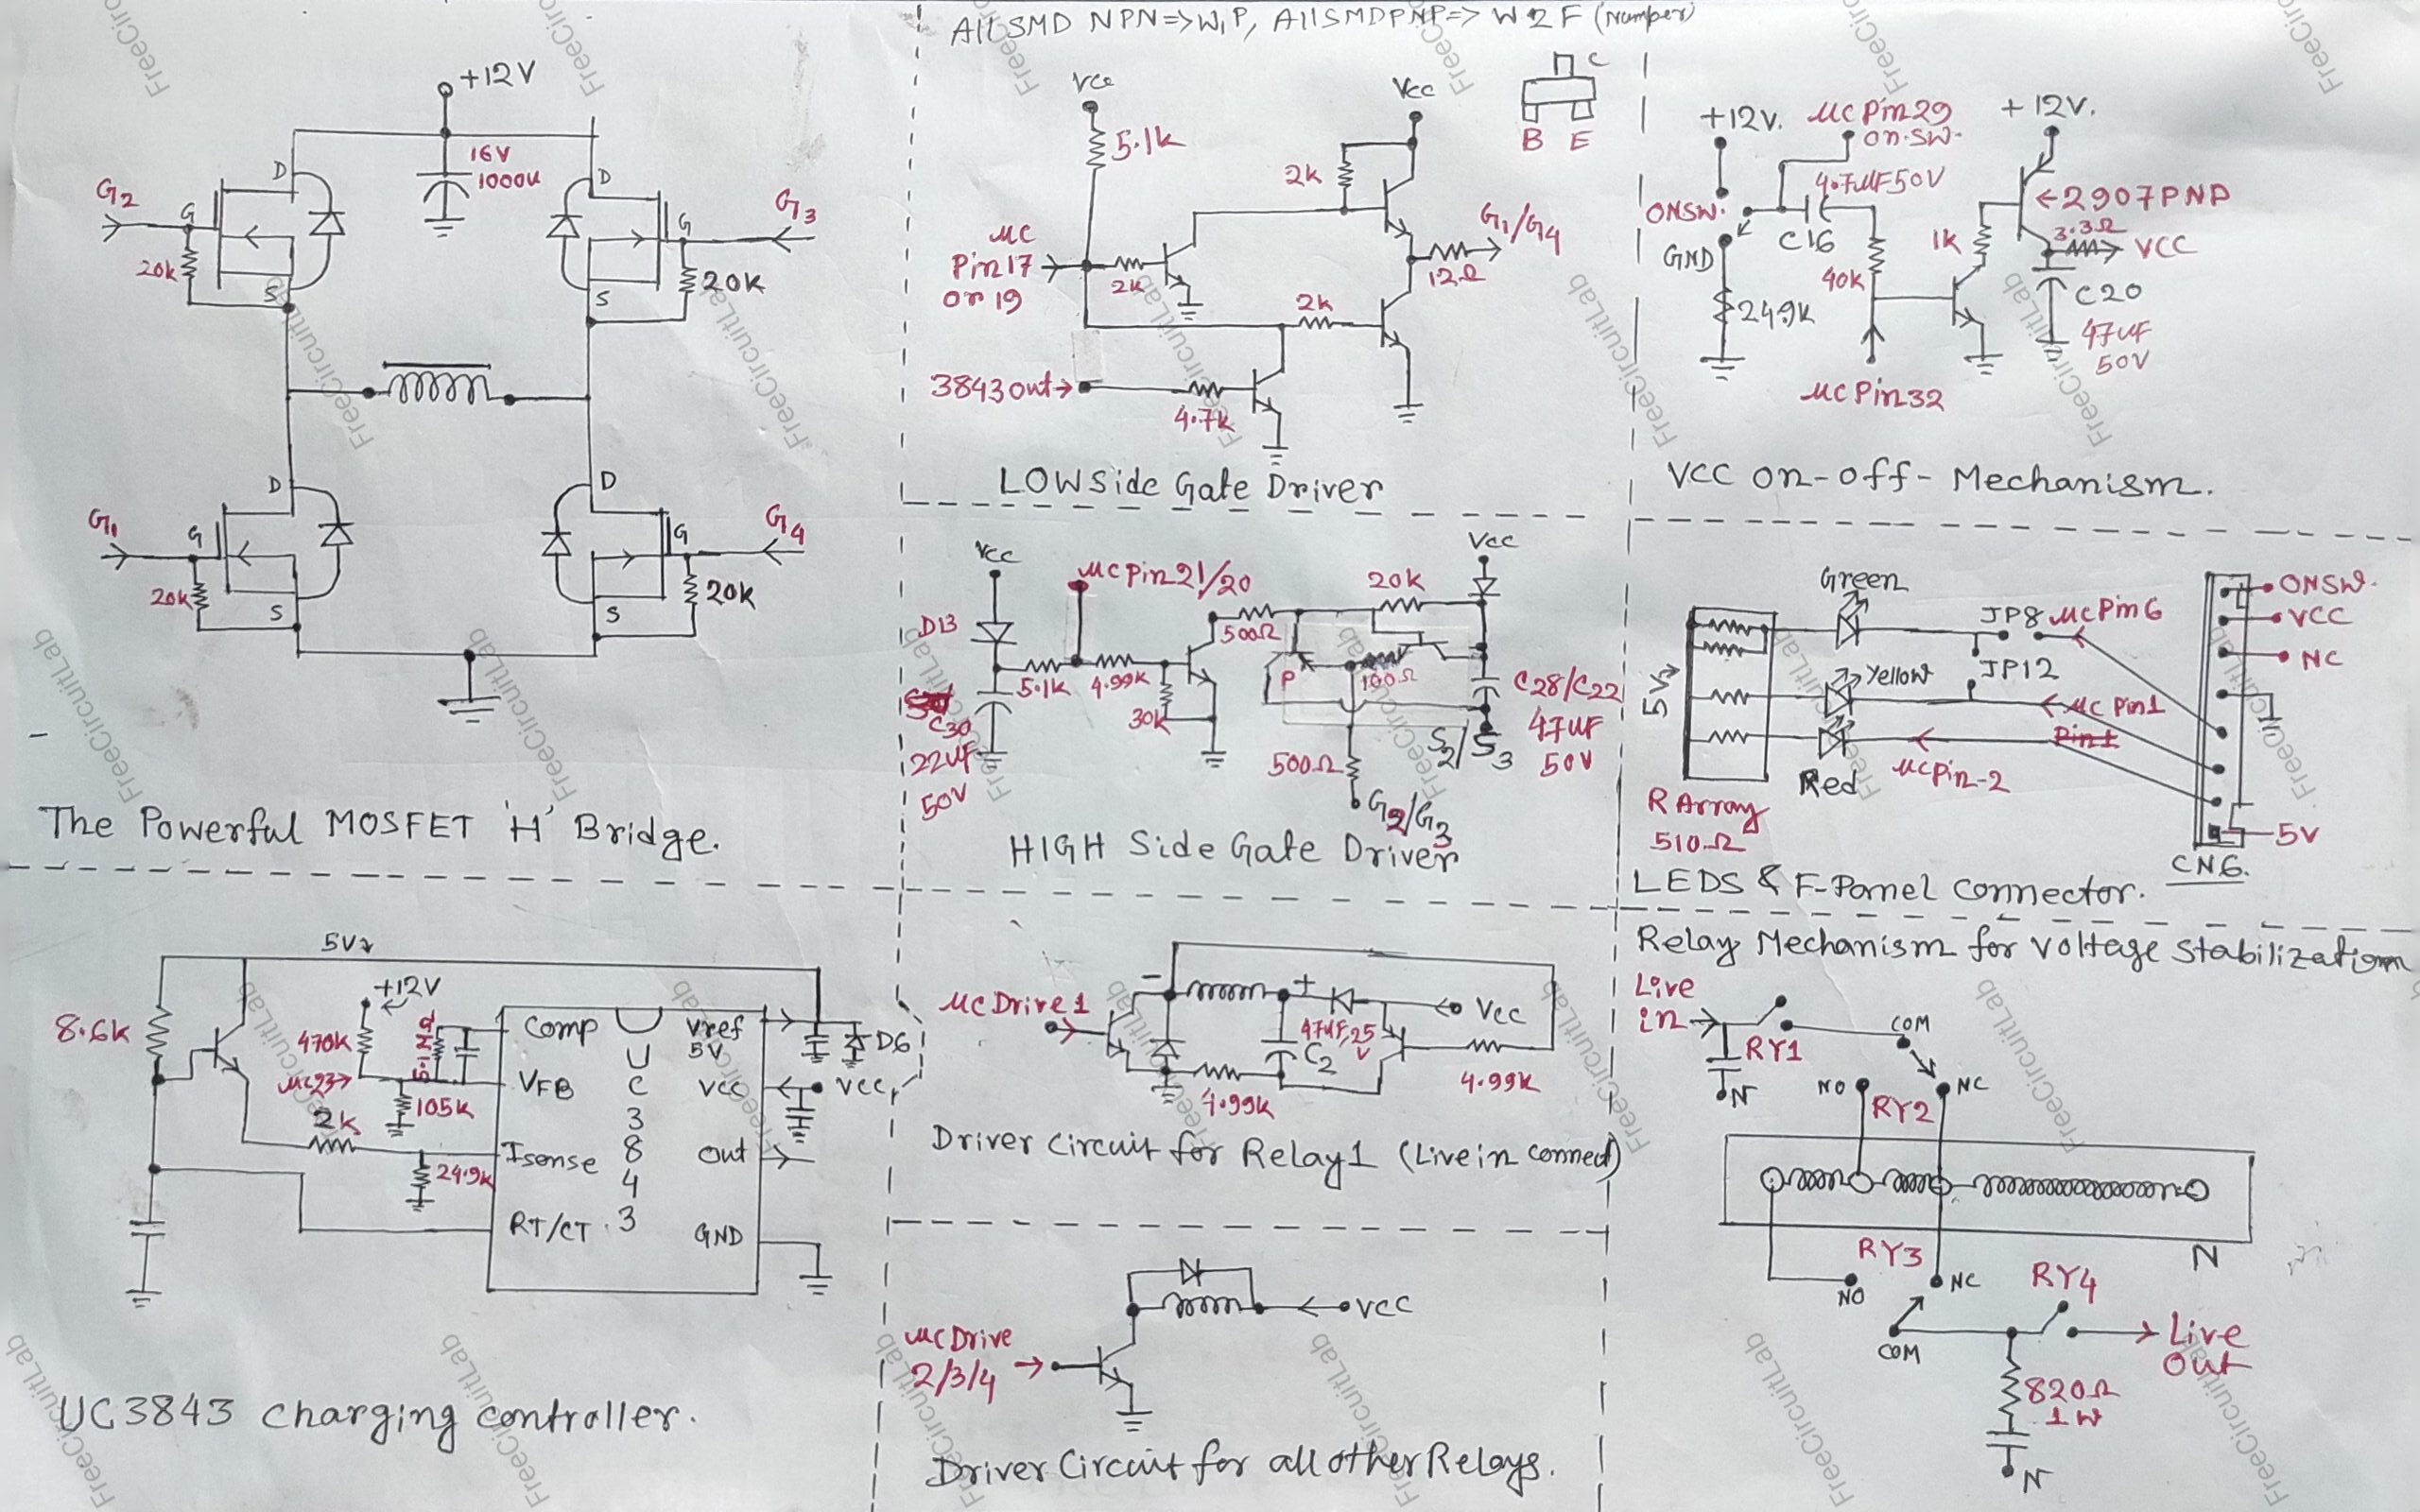 All SMD NPN=>W1P, All SMD PNP=> W2F (Number)
+12V
16V
1000u
D
D
G2
G
G
G3
20k
20k
S
S
D
D
G1
G
G
G4
20k
20k
S
S
The Powerful MOSFET 'H' Bridge.
Vcc
5.1k
Vcc
2k
C
B E
MC
Pin17
or 19
2k
2k
G1/G4
12Ω
3843out→
4.7k
LOWSide Gate Driver
+12V.
MC Pin29
on.SW.
+12V.
4.7uF50V
←2907PNP
ONSW.
C16
1k
3.3Ω
VCC
GND
40k
C20
249k
47uF
50V
MC Pin32
VCC on-off- Mechanism.
Vcc
MC Pin21/20
20k
Vcc
D13
500Ω
5.1k
4.99k
P
100Ω
30k
C30
22uF
50V
C28/C22
47uF
50V
S2/S3
500Ω
G2/G3
HIGH Side Gate Driver
Green
JP8
MC Pin6
ONSW.
VCC
NC
5V
Yellow
JP12
MC Pin1
Pin1
Red
MCPin-2
R Array
510Ω
5V
CN6.
LEDS & F-Panel connector.
5V
+12V
8.6k
470k
5.1MΩ
MC23→
105k
2k
24.9k
Comp
VFB
Isense
RT/CT
U
C
3
8
4
3
Vref
5V
VCC
Out
GND
D6
VCC
UC3843 charging controller.
MC Drive1
-
+
Vcc
47uF,25
V
C2
4.99k
4.99k
Driver circuit for Relay1 (Livein connect)
MC Drive
2/3/4 →
VCC
Driver Circuit for all other Relays.
Relay Mechanism for Voltage Stabilization
Live
in→
RY1
COM
N
NO
RY2
NC
N
RY3
NO
NC
RY4
COM
Live
Out
820Ω
1W
N
FreeCircuitLab
FreeCircuitLab
FreeCircuitLab
FreeCircuitLab
FreeCircuitLab
FreeCircuitLab